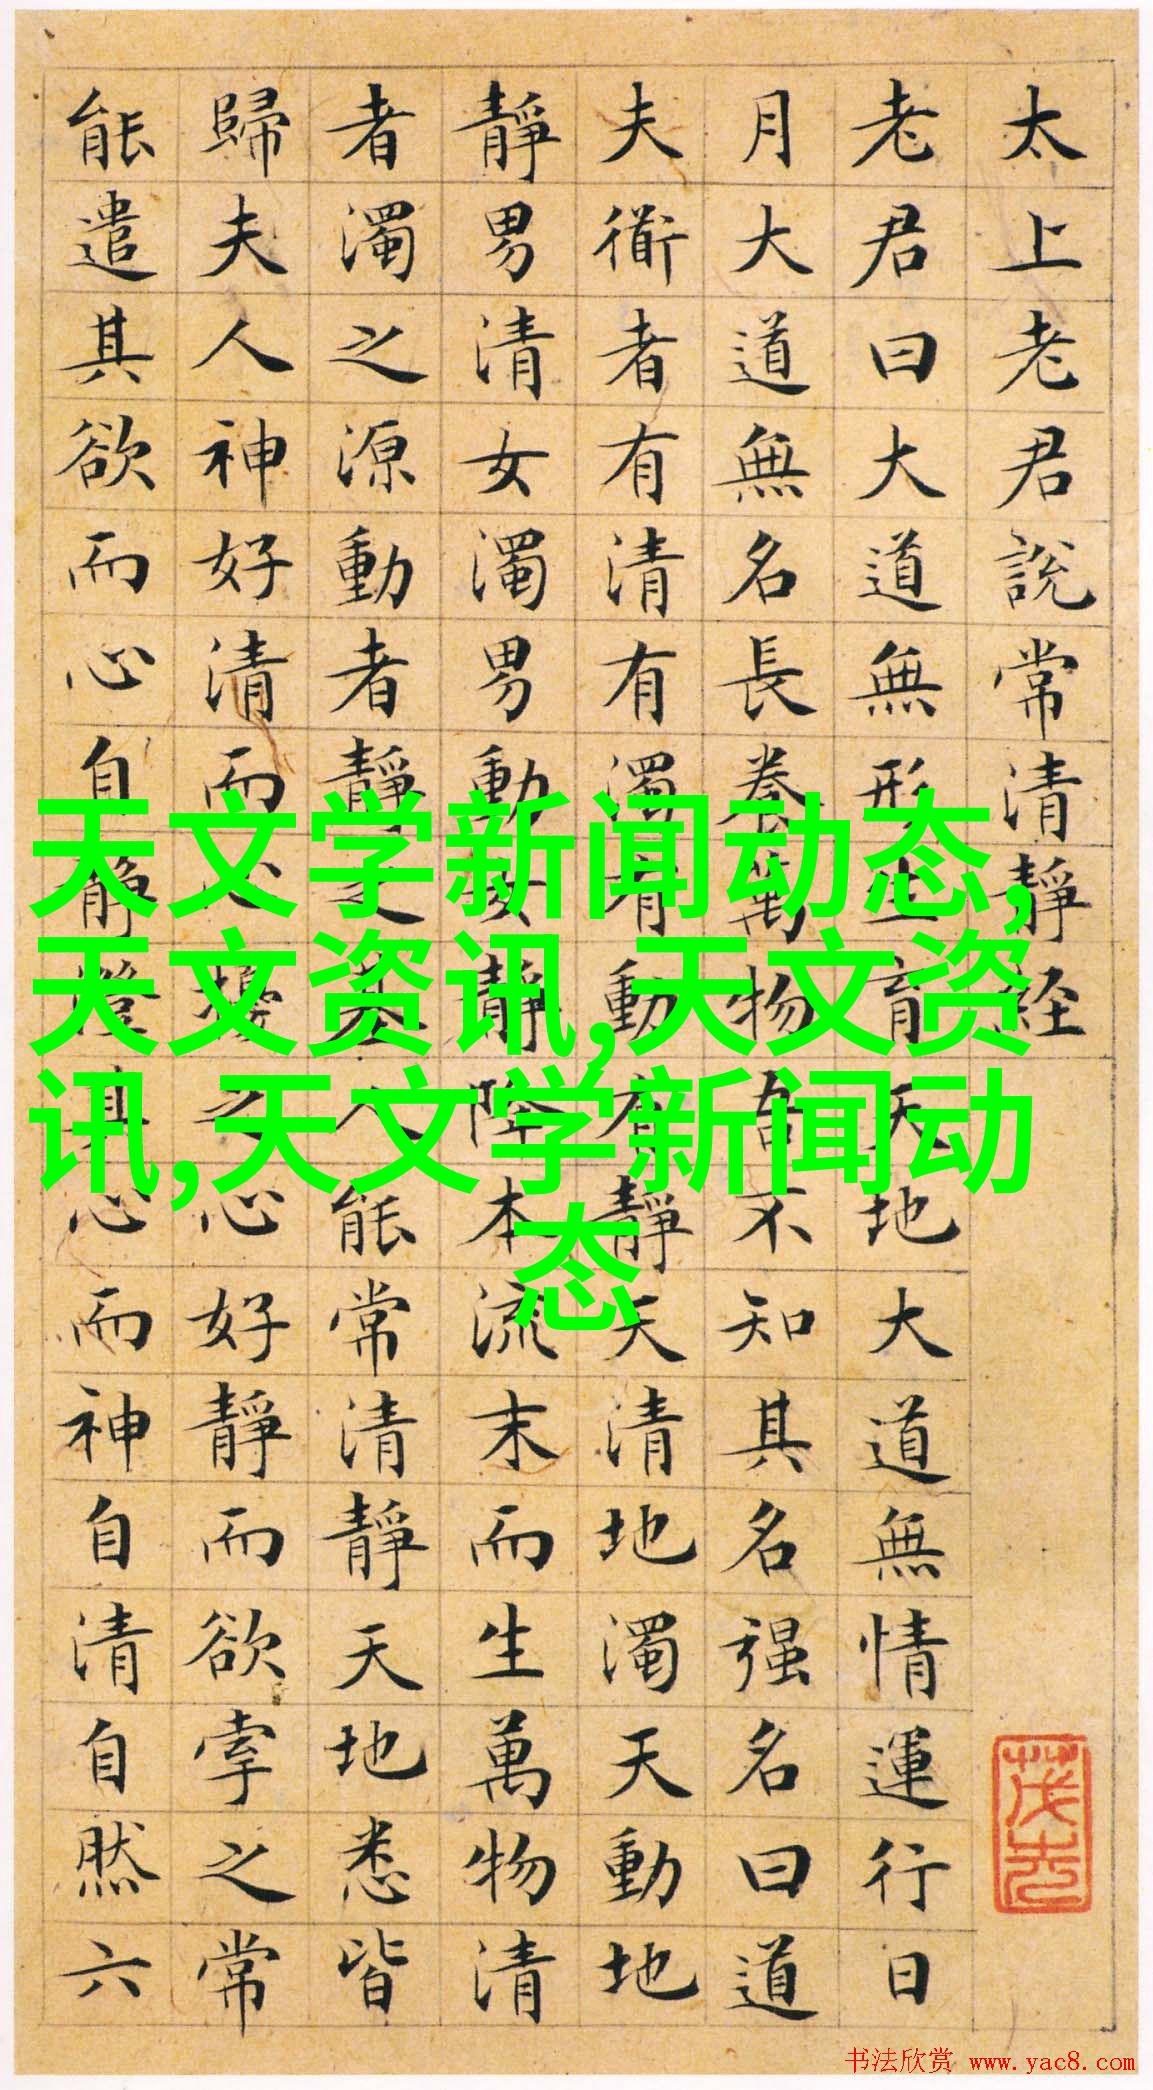 太上老君說常清靜経
老君曰大道無形生育天地大道無情運行日
月大道無名長養萬物吾不知其名强名曰道
夫衜者有清有濁有動有靜天清地濁天動地
靜男清女濁男動女靜降本流末而生萬物清
者濁之源動者靜之基人能常清靜天地悉皆
歸夫人神好清而心擾之心好靜而欲牽之常
能遣其欲而心自靜澄其心而神自清自然六
天文学新闻动态,
天文资讯,天文资
讯,天文学新闻动
态
书法欣赏 www.yac8.com